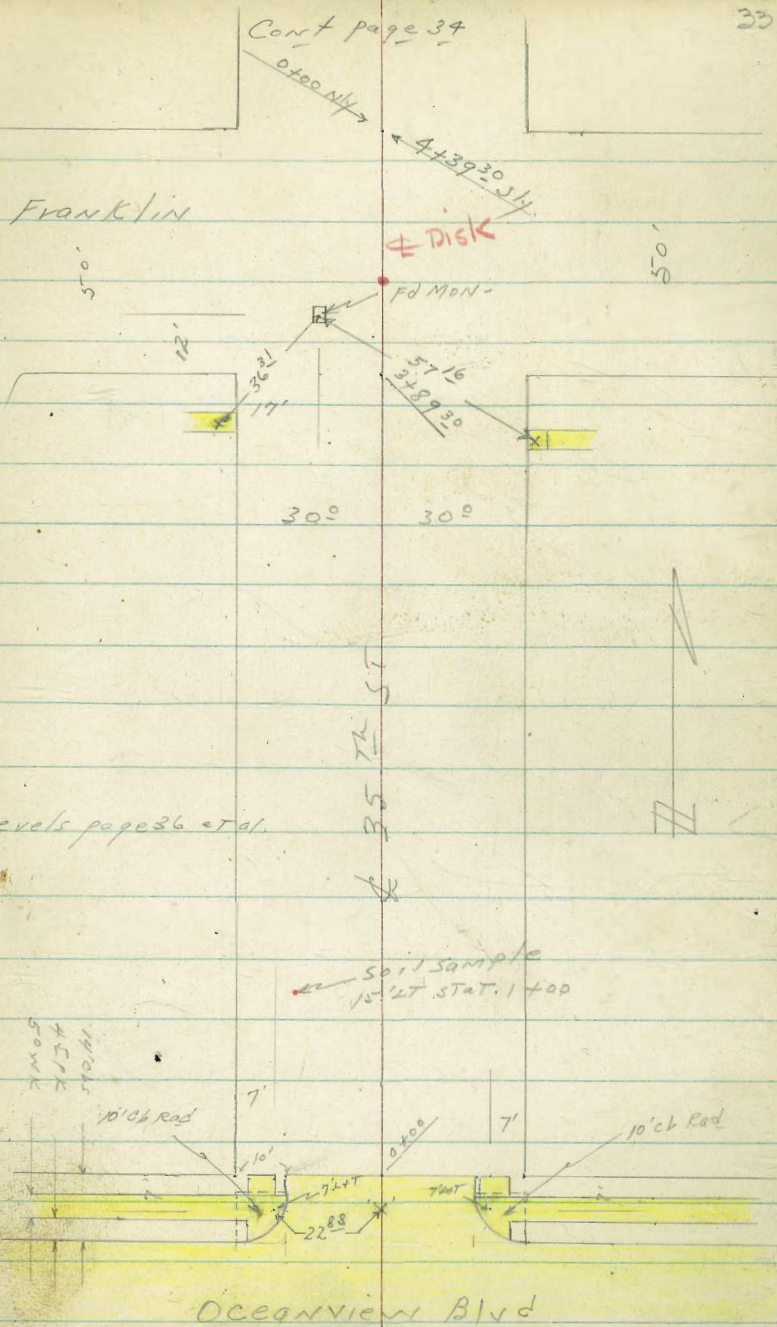 33
Cont page 34
0+00 Nly
4+39 30 Sly
Franklin
℄ Disk
50'
50'
Fd Mon-
12'
36 31
17'
57 16
3+89 30
30 0
30 0
℄ 35 Th ST
evels page 36 et al.
Soil Sample
15' LT STaT. 1+00
7'
7'
0+00
10' cb Rad
10' cb Rad
10'
7'
7'
22 88
Oceanview Blvd